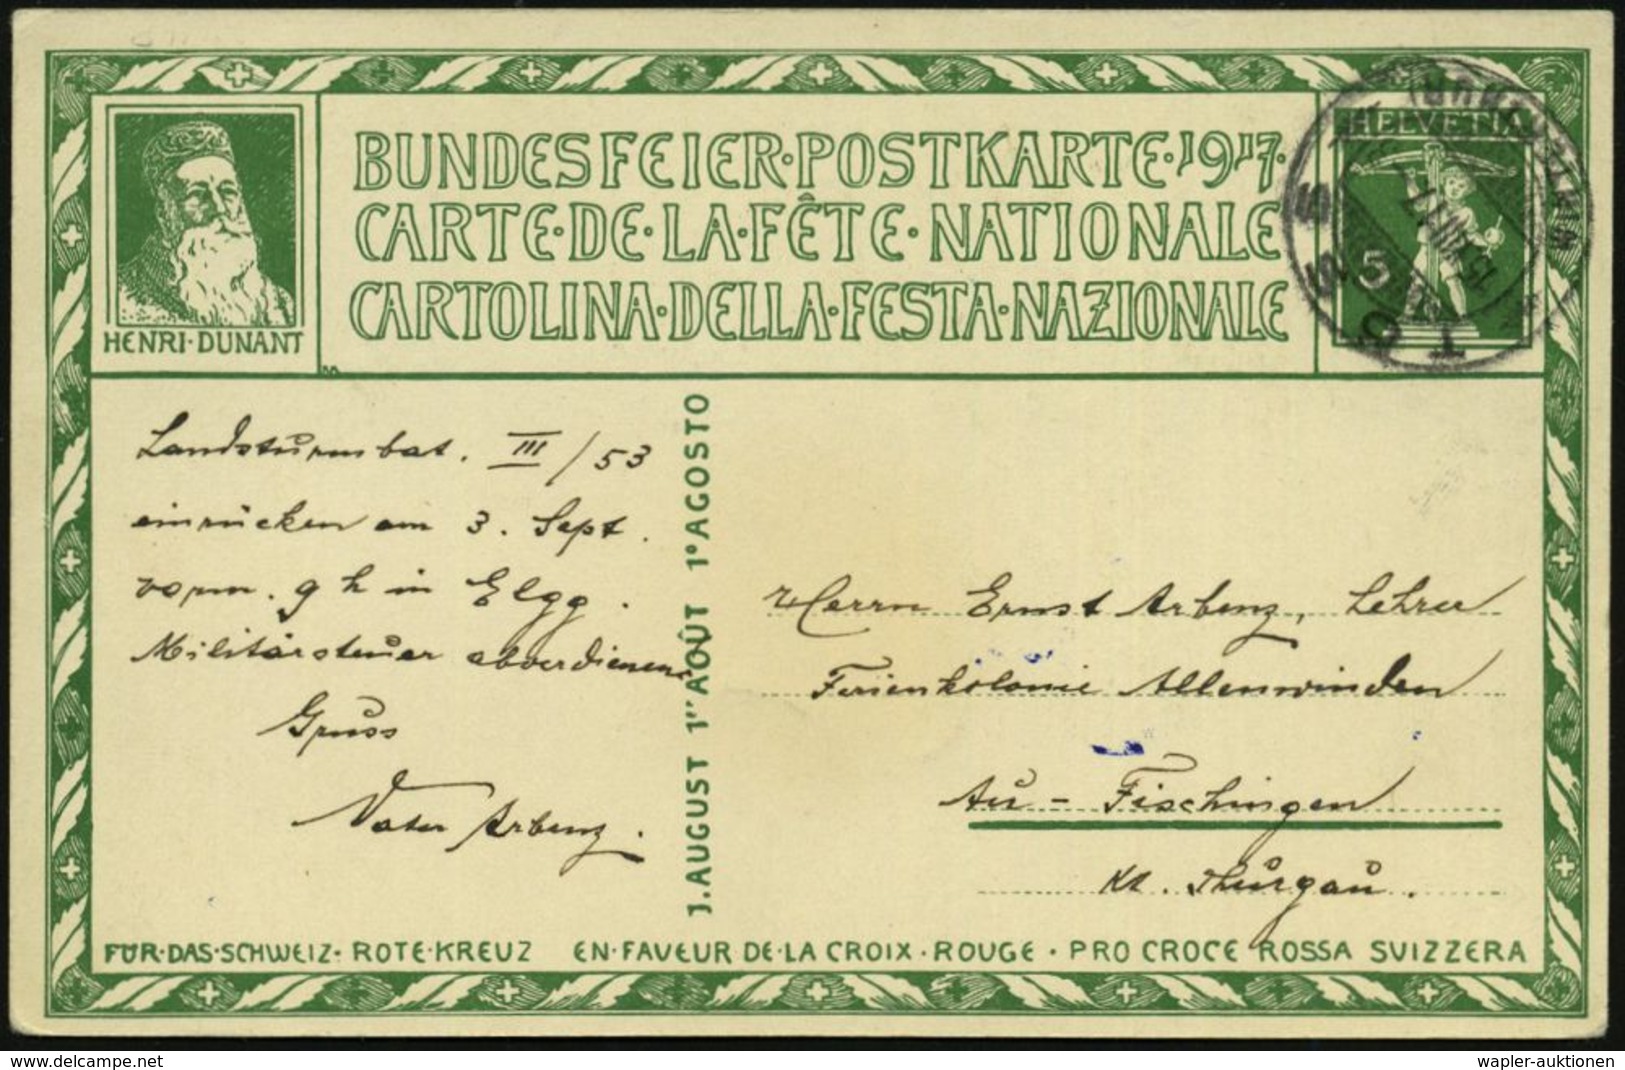 BUNDESFEIER·POSTKARTE·1917·
CARTE·DE·LA·FÊTE·NATIONALE
CARTOLINA·DELLA·FESTA·NAZIONALE
HENRI·DUNANT
HELVETIA
5
WINTERTHUR
15.VIII.17
TÖSS
Landsturmbat. III/53
einrücken am 3. Sept.
vorm. 9 h in Elgg.
Militärsteuer abverdienen
Gruss
Vater Arbenz.
1. AUGUST 1ER AOÛT 1º AGOSTO
Herrn Ernst Arbenz, Lehrer
Ferienkolonie Allenwinden
Au – Fischingen
Kt. Thurgau.
FÜR·DAS·SCHWEIZ·ROTE·KREUZ EN·FAVEUR DE·LA CROIX·ROUGE · PRO CROCE ROSSA SVIZZERA
www.delcampe.net
wapler-auktionen